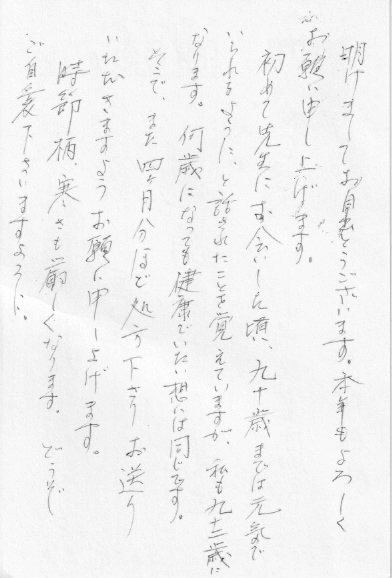 明けましてお目出とうございます。本年もよろしく
お願い申し上げます。
初めて先生にお会いした頃、九十歳までは元気で
いられるように、と話されたことを覚えていますが、私も九十三歳に
なります。何歳になっても健康でいたい想いは同じです。
そこで、また四ヶ月分ほど処方下さりお送り
いただきますようお願い申し上げます。
時節柄、寒さも厳しくなります。どうぞ
ご自愛下さいますように。